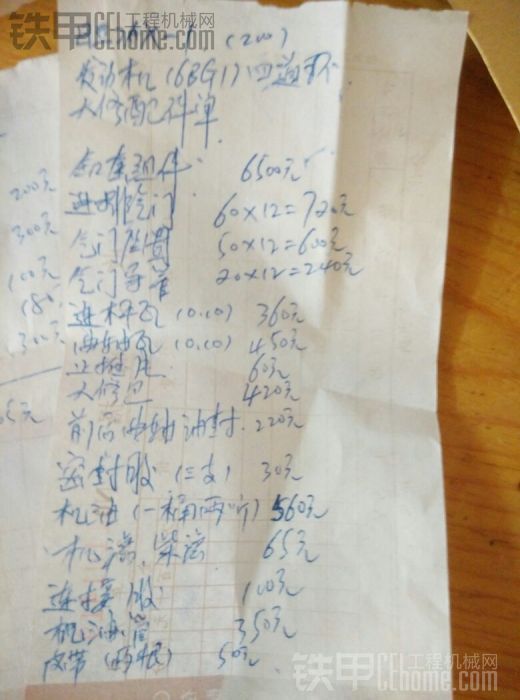 铁甲工程机械网
(200)
发动机(6BG1)四道环
大修配件单
缸套组件 6500元
进排气门 60×12=720元
气门座圈 50×12=600元
气门导管 20×12=240元
连杆瓦(0.10) 360元
曲轴瓦(0.10) 450元
止推片 60元
大修包 420元
前后曲轴油封 220元
密封胶(三支) 30元
机油(一桶两听) 560元
机滤.柴滤 65元
连接胶 100元
机油管 350元
皮带(两根) 50元
200元
300元
100元
180
300元
05元
铁甲工程机械网
bbs.cehome.com